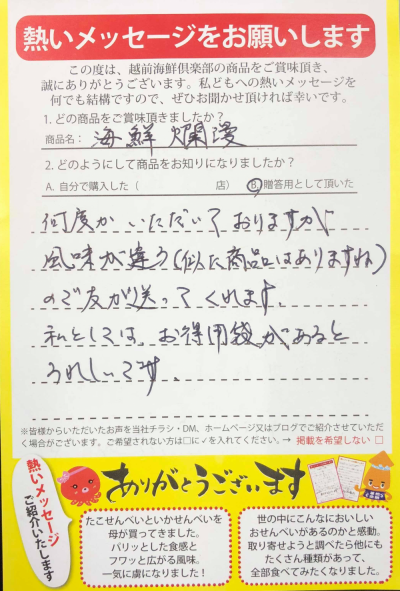 熱いメッセージをお願いします
この度は、越前海鮮倶楽部の商品をご賞味頂き、
誠にありがとうございます。私どもへの熱いメッセージを
何でも結構ですので、ぜひお聞かせ頂ければ幸いです。
1. どの商品をご賞味頂きましたか？
商品名： 海鮮爛漫
2. どのようにして商品をお知りになりましたか？
A. 自分で購入した（ 店） B. 贈答用として頂いた
何度かいただいておりますが
風味が違う(似た商品はありますね)
ので友が送ってくれます。
私としては、お得用袋があると
うれしいです。
※皆様からいただいたお声を当社チラシ・DM、ホームページ又はブログでご紹介させていただ
く場合がございます。ご希望されない方は□に✓を入れてください。→ 掲載を希望しない □
熱いメッセージ
ご紹介いたします
ありがとうございます
たこせんべいといかせんべいを
母が買ってきました。
パリッとした食感と
フワッと広がる風味。
一気に虜になりました！
世の中にこんなにおいしい
おせんべいがあるのかと感動。
取り寄せようと調べたら他にも
たくさん種類があって、
全部食べてみたくなりました。